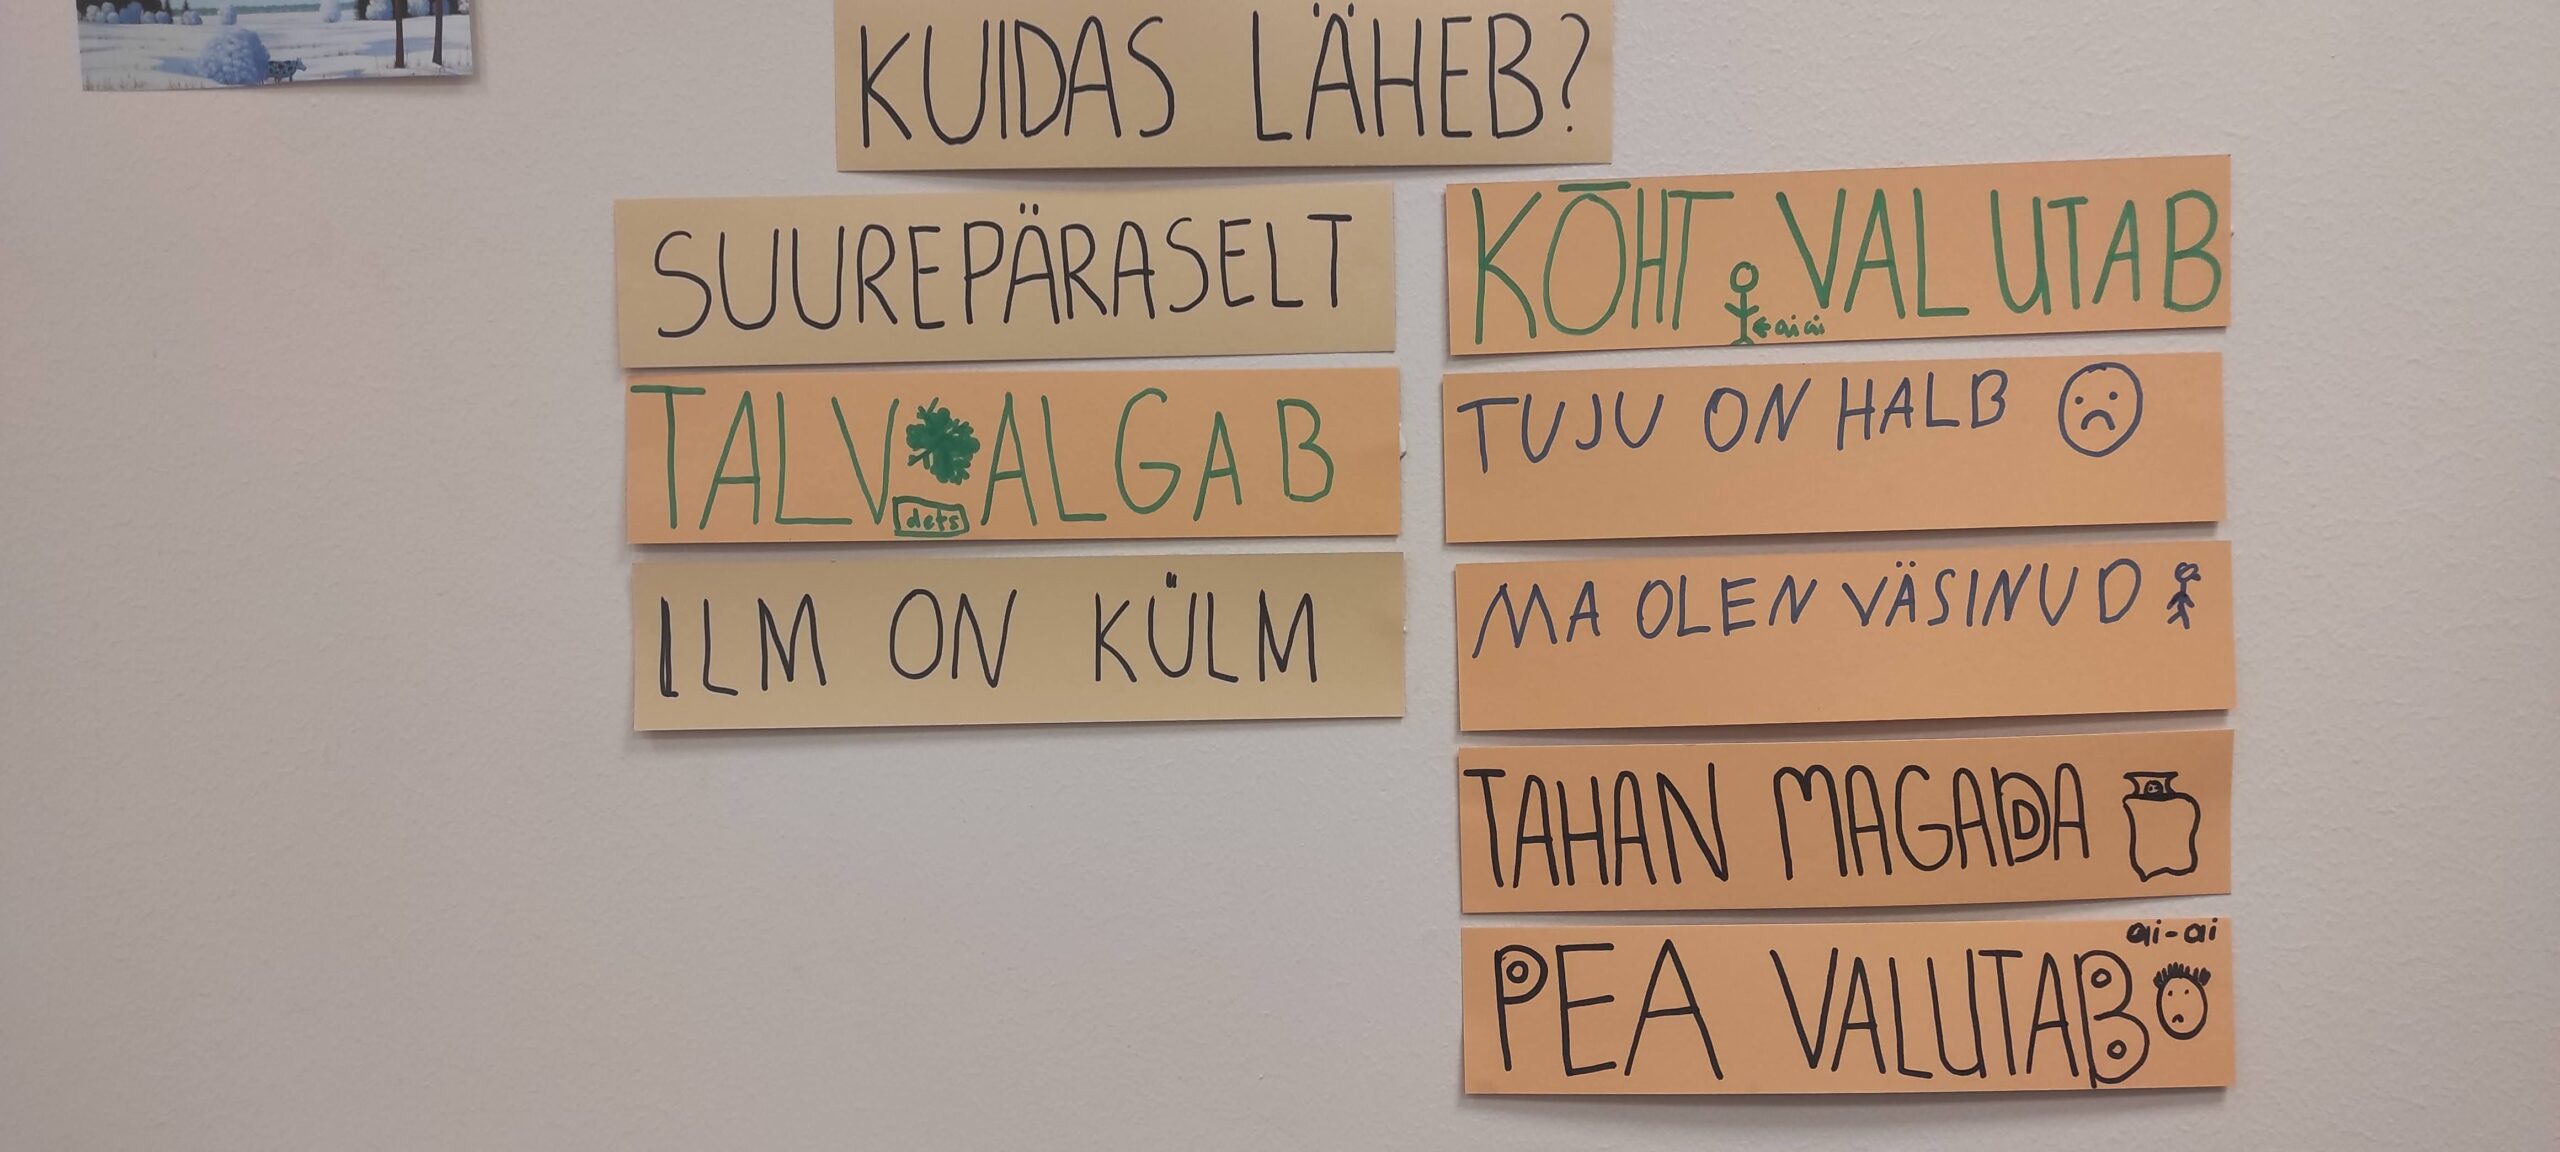 KUIDAS LÄHEB?
SUUREPÄRASELT
TALV ALGAB
dets
ILM ON KÜLM
KŌHT VALUTAB
ai ai
TUJU ON HALB
MA OLEN VÄSINUD
TAHAN MAGADA
ai-ai
PEA VALUTAB